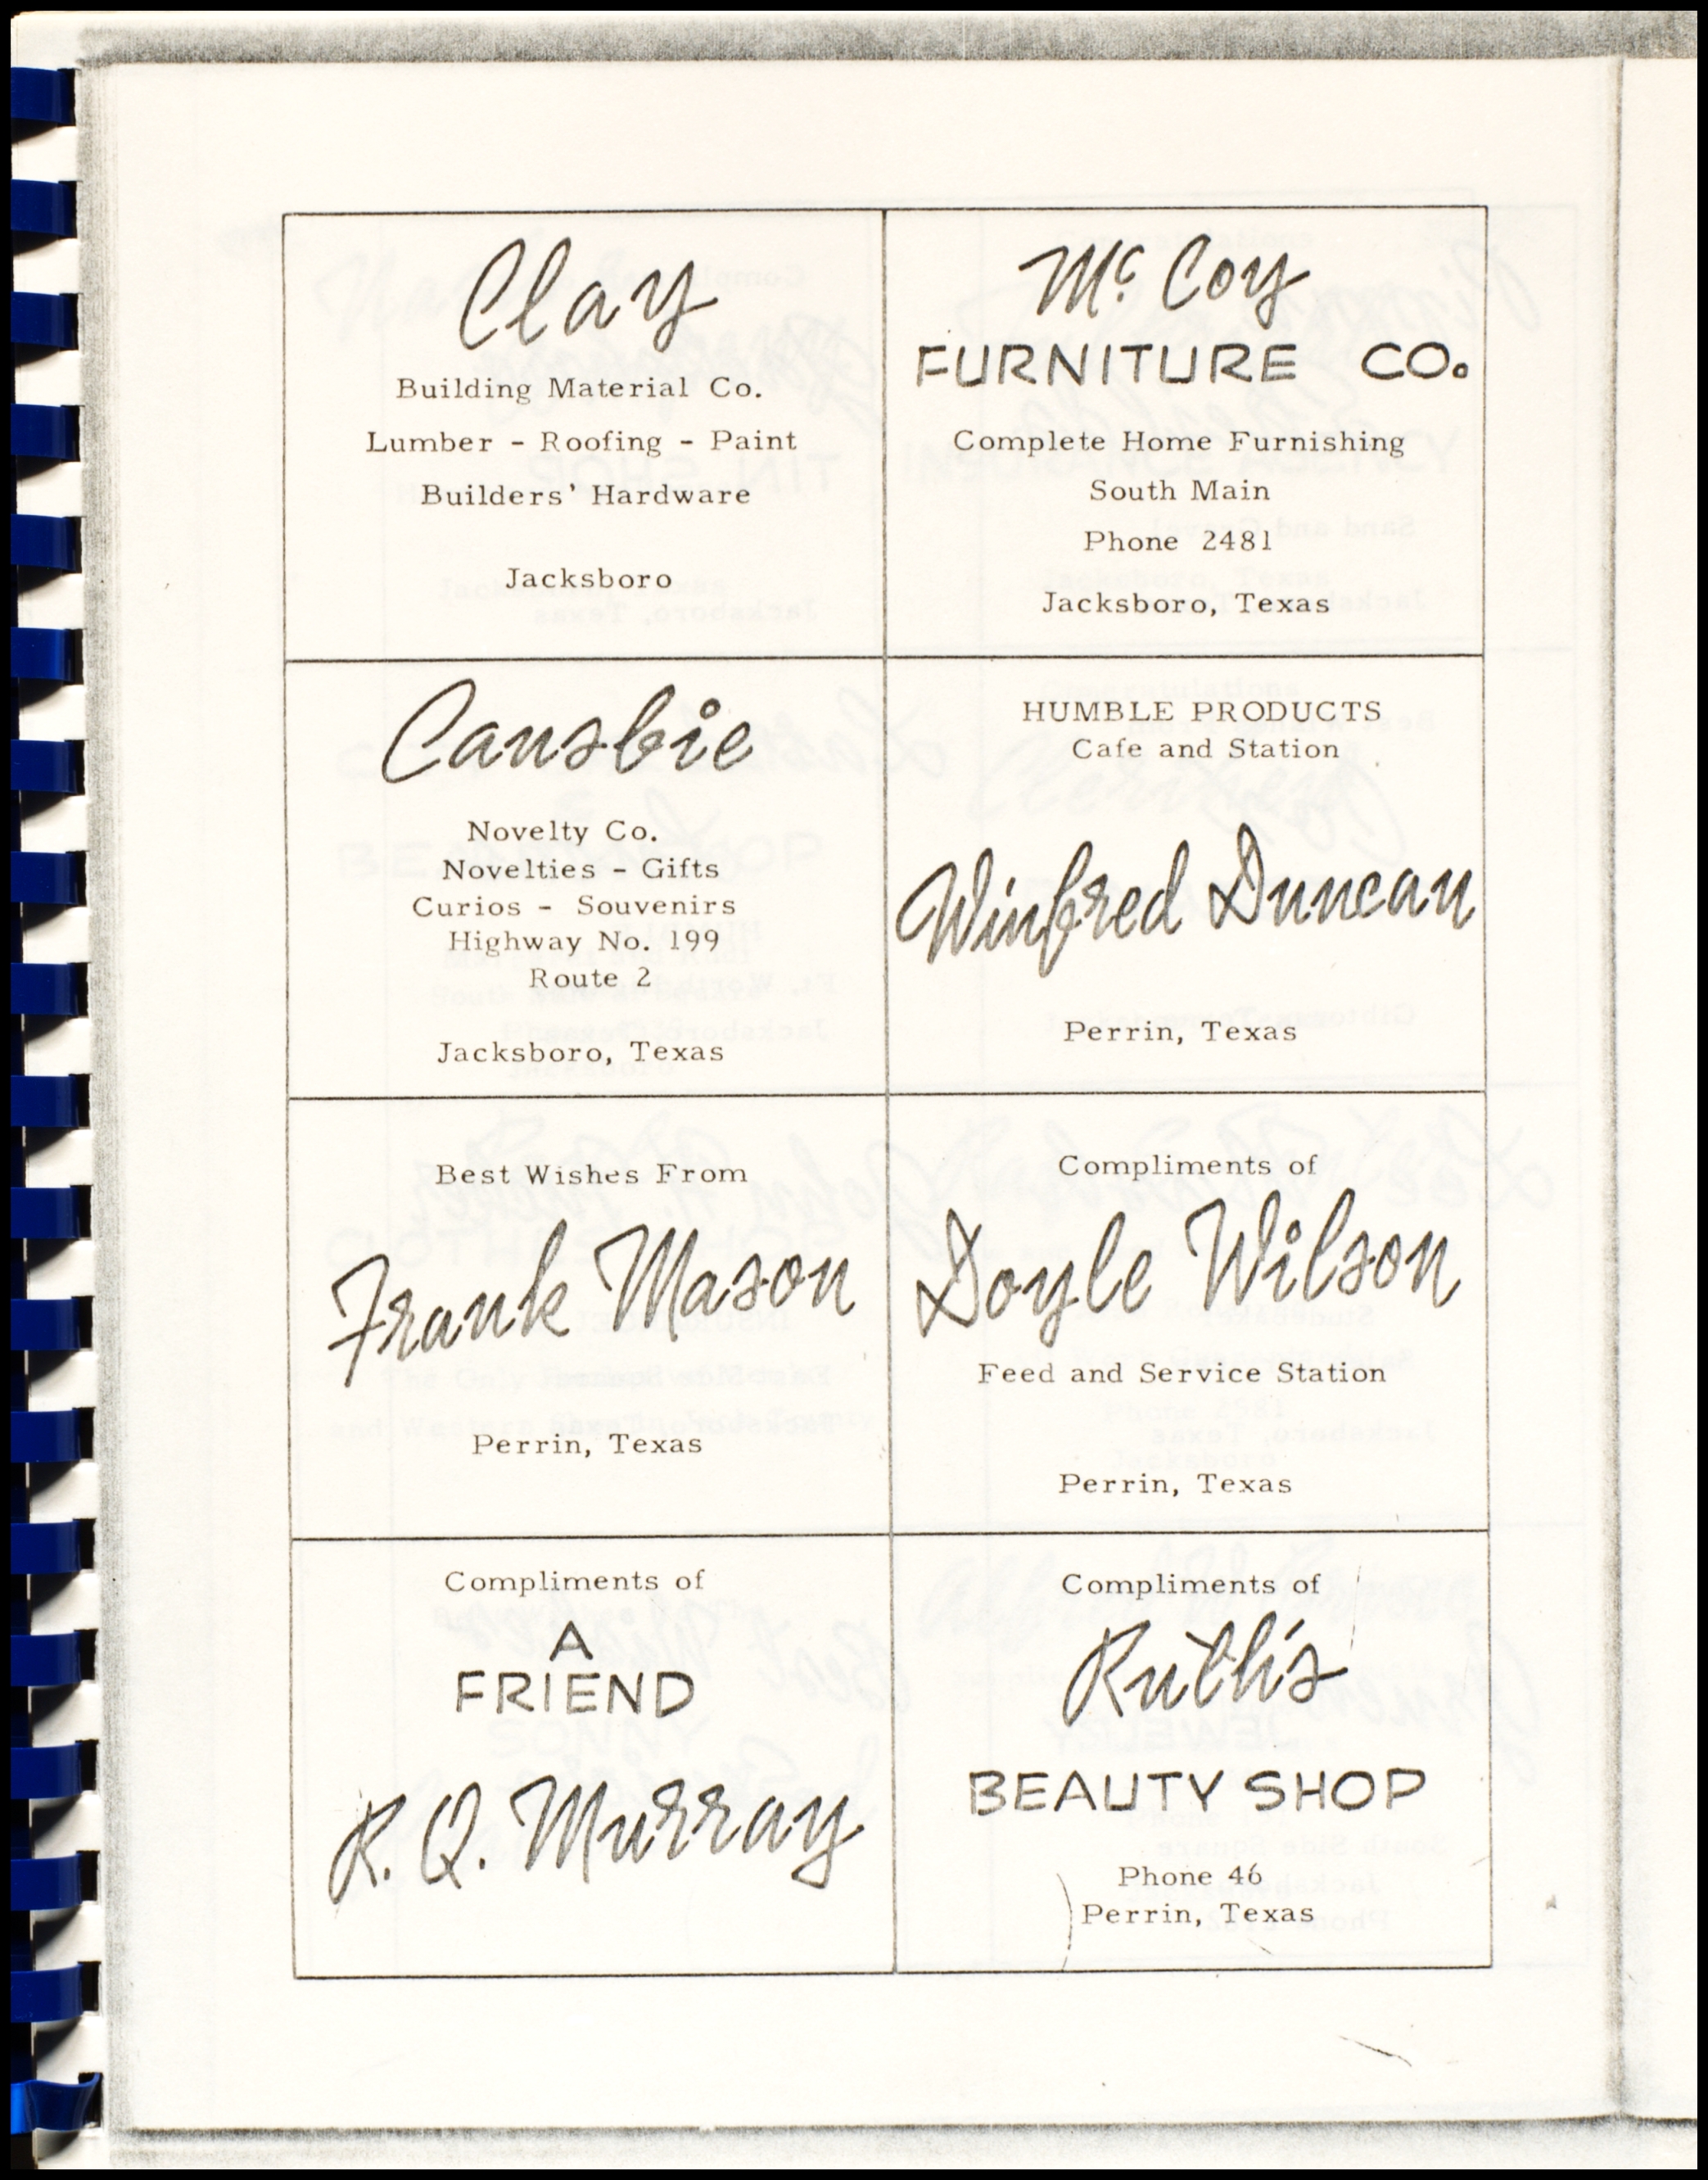 Clay
Building Material Co.
Lumber - Roofing - Paint
Builders' Hardware
Jacksboro
Mc Coy
FURNITURE CO.
Complete Home Furnishing
South Main
Phone 2481
Jacksboro, Texas
Cansbie
Novelty Co.
Novelties - Gifts
Curios - Souvenirs
Highway No. 199
Route 2
Jacksboro, Texas
HUMBLE PRODUCTS
Cafe and Station
Winfred Duncan
Perrin, Texas
Best Wishes From
Frank Mason
Perrin, Texas
Compliments of
Doyle Wilson
Feed and Service Station
Perrin, Texas
Compliments of
A
FRIEND
R. Q. Murray
Compliments of
Ruth's
BEAUTY SHOP
Phone 46
Perrin, Texas